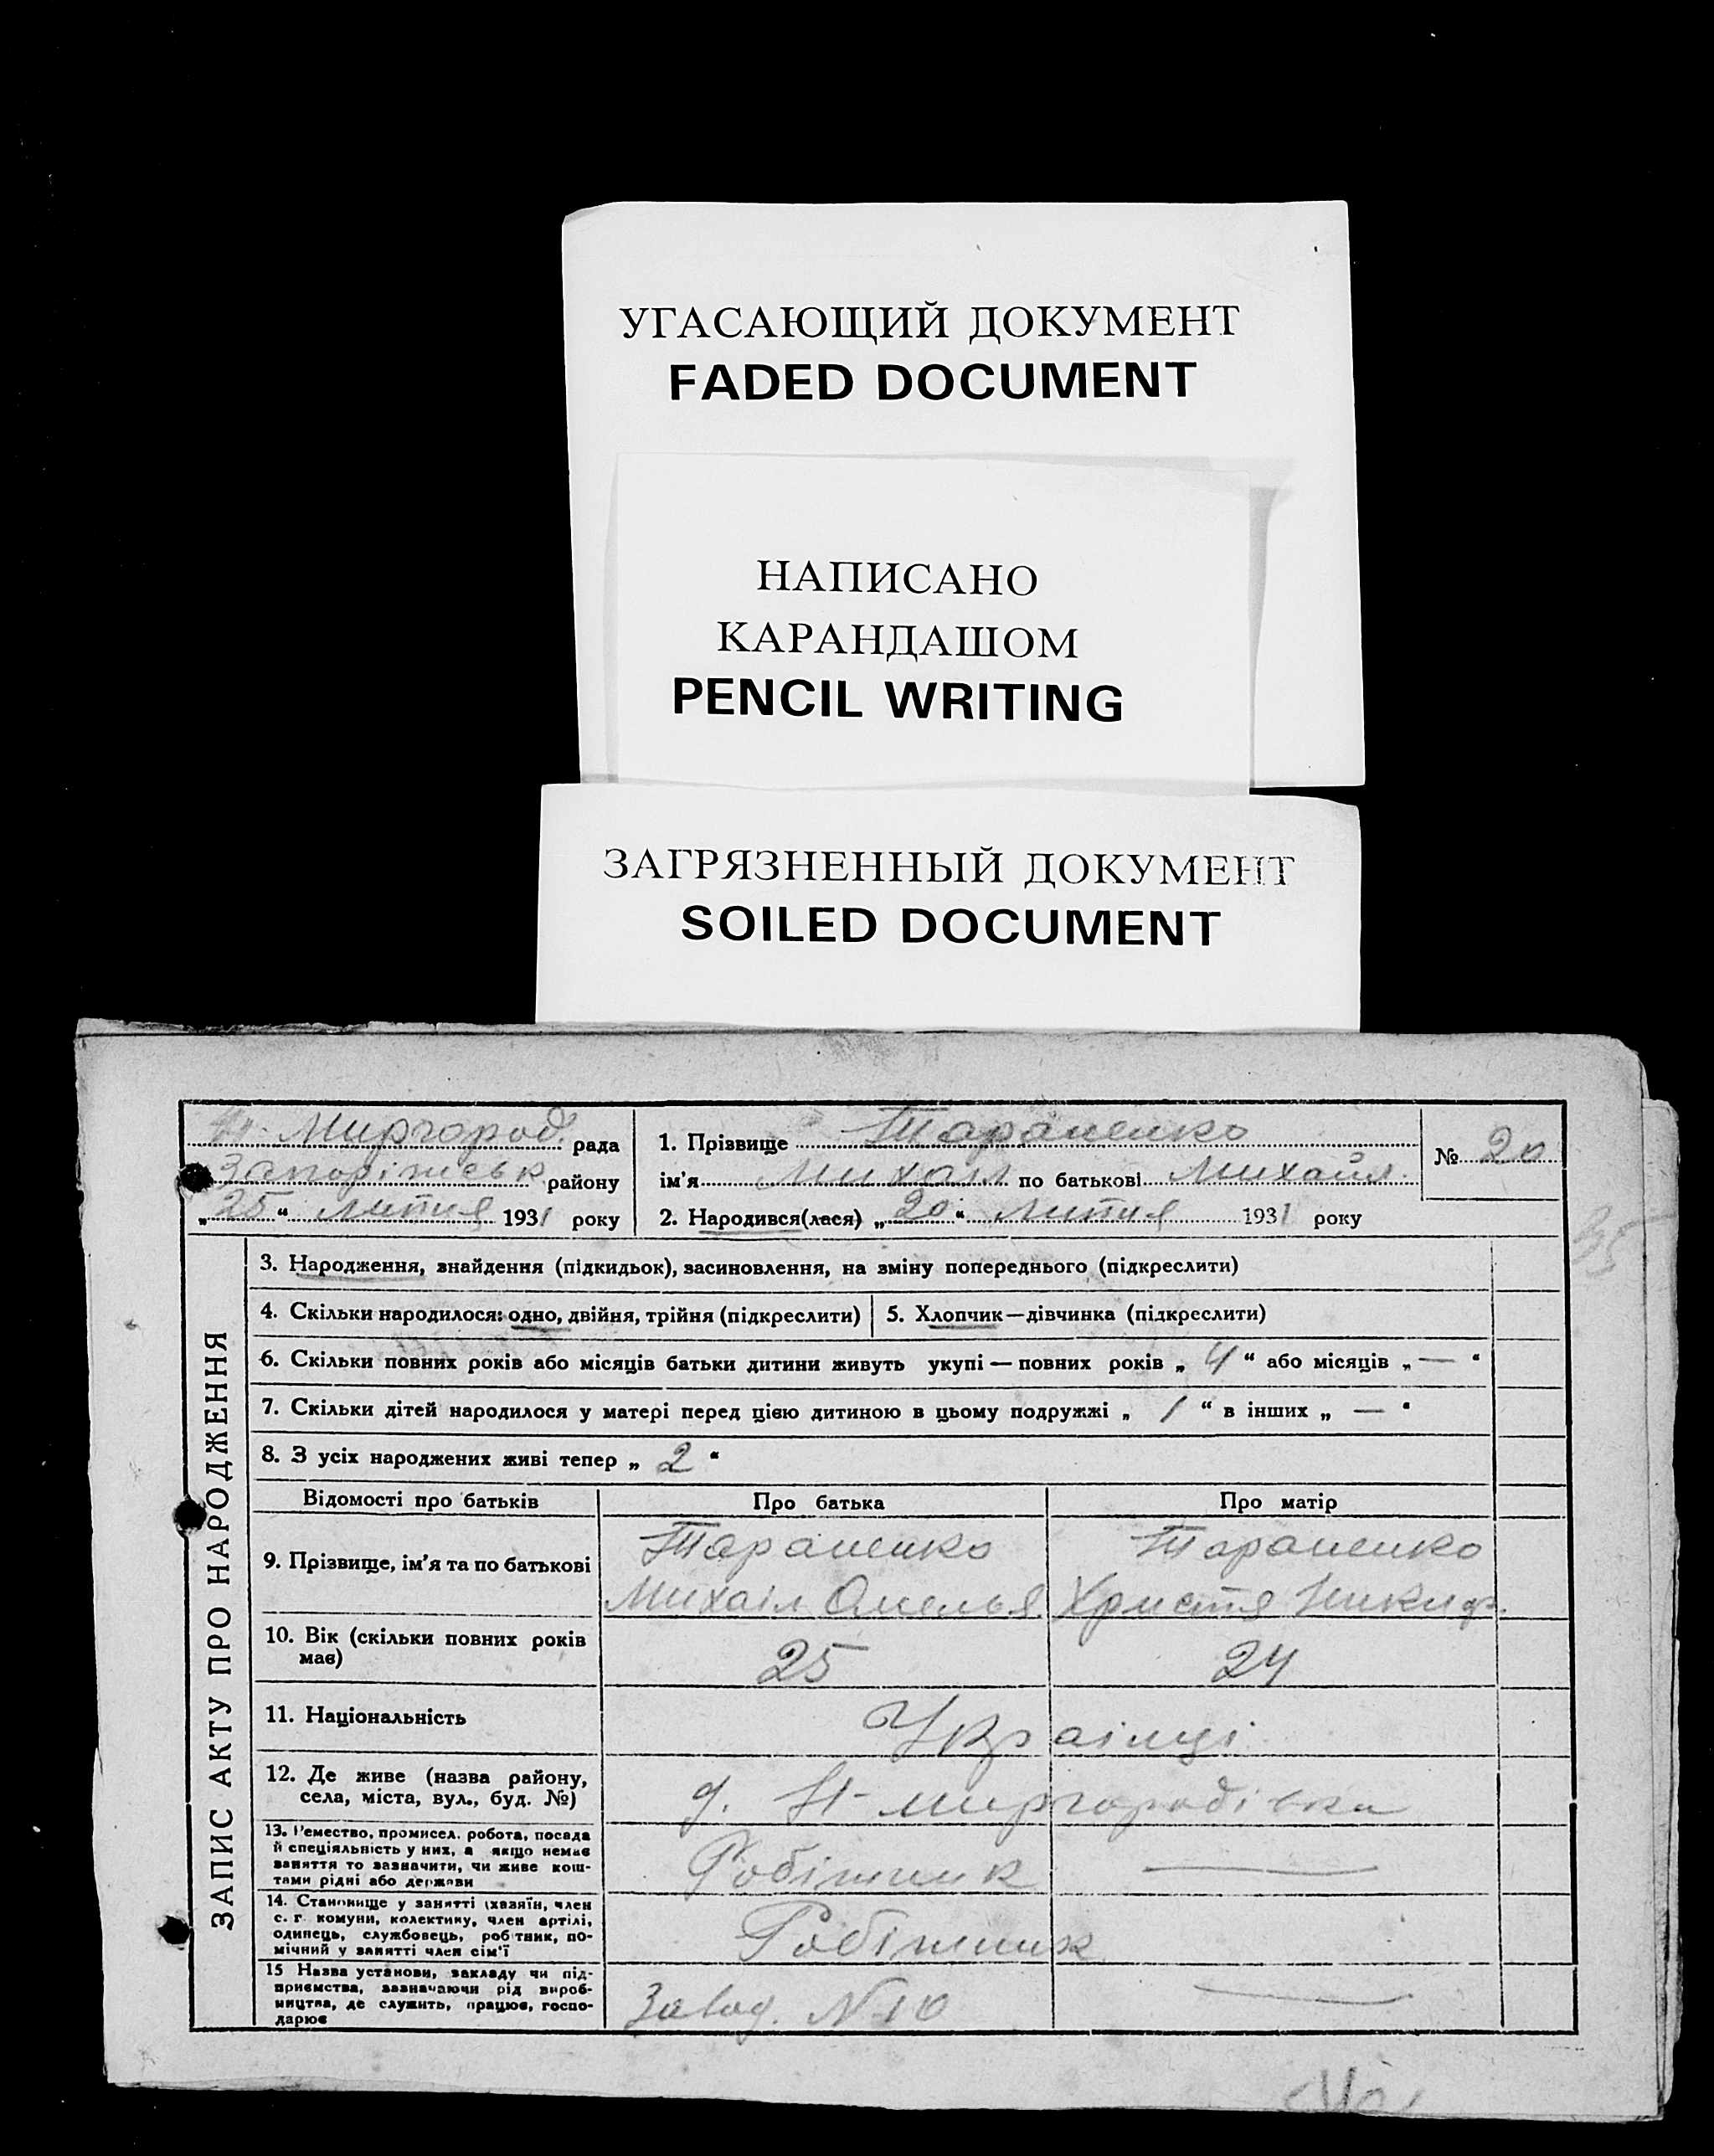 УГАСАЮЩИЙ ДОКУМЕНТ
FADED DOCUMENT
НАПИСАНО
КАРАНДАШОМ
PENCIL WRITING
ЗАГРЯЗНЕННЫЙ ДОКУМЕНТ
SOILED DOCUMENT
Н. Миргород. рада
Запоріжськ. району
„25“ липня 1931 року
1. Прізвище Тараненко
ім'я Михаіл по батькові Михайл.
2. Народився(лася) „20“ липня 1931 року
№ 20
35
ЗАПИС АКТУ ПРО НАРОДЖЕННЯ
3. Народження, знайдення (підкидьок), засиновлення, на зміну попереднього (підкреслити)
4. Скільки народилося: одно, двійня, трійня (підкреслити)
5. Хлопчик—дівчинка (підкреслити)
6. Скільки повних років або місяців батьки дитини живуть укупі — повних років „ 4 “ або місяців „ — “
7. Скільки дітей народилося у матері перед цією дитиною в цьому подружжі „ 1 “ в інших „ — “
8. З усіх народжених живі тепер „ 2 “
Відомості про батьків
Про батька
Про матір
9. Прізвище, ім'я та по батькові
Тараненко
Михаіл Омелья.
Тараненко
Христя Никиф.
10. Вік (скільки повних років
має)
25
24
11. Національність
Українці
12. Де живе (назва району,
села, міста, вул., буд. №)
Н-миргородівка
13. Ремество, промисел, робота, посада
й спеціяльність у них, а якщо немає
заняття то зазначити, чи живе кош-
тами рідні або держави
Робітник —
14. Становище у занятті (хазяїн, член
с. г. комуни, колективу, член артілі,
одинець, службовець, робітник, по-
мічний у занятті член сім'ї
Робітник
15 Назва установи, закладу чи під-
приємства, зазначаючи рід вироб-
ництва, де служить, працює, госпо-
дарює
Завод. N 10 —